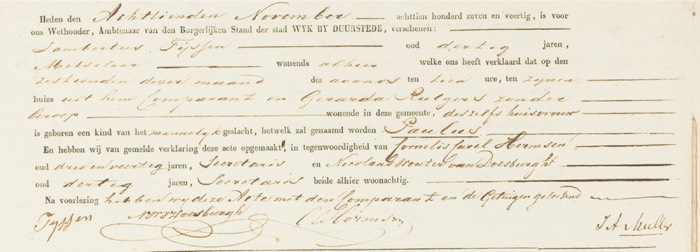 Heden den Achttienden November achttien honderd zeven en veertig, is voor
ons Wethouder, Ambtenaar van den Burgerlijken Stand der stad WYK BY DUURSTEDE, verschenen:
Lambertus Tijssen oud dertig jaren,
Metselaar wonende alhier welke ons heeft verklaard dat op den
zestienden dezer maand des avonds ten tien ure, ten zijnen
huize uit hem Comparant en Gerarda Rutgers zonder
beroep wonende in deze gemeente, deszelfs huisvrouw
is geboren een kind van het mannelijk geslacht, hetwelk zal genaamd worden Paulus
En hebben wij van gemelde verklaring deze acte opgemaakt, in tegenwoordigheid van Cornelis Karel Hermsen
oud drie en veertig jaren, Secretaris en Nicolaas Wouter van Doesburgh
oud dertig jaren, Secretaris beide alhier woonachtig.
Na voorlezing hebben wy deze Acte met den Comparant en de Getuigen geteekend
Tijssen NWvDoesburgh CKHermsen